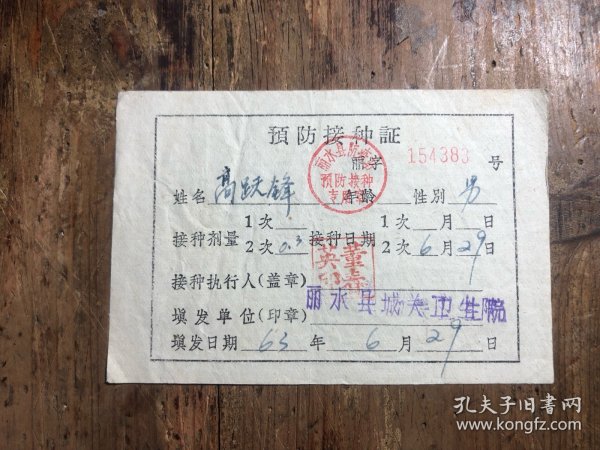 預防接种証
丽字 154383 号
丽水县
預防接种
专用
姓名 高跃锋 年龄 性别 男
接种剂量 1次 接种日期 1次 月 日
2次 0.3 2次 6月29日
接种执行人(盖章)
填发单位(印章) 丽水县城关卫生院
填发日期 63年 6月 29日
孔夫子旧书网
www.kongfz.com